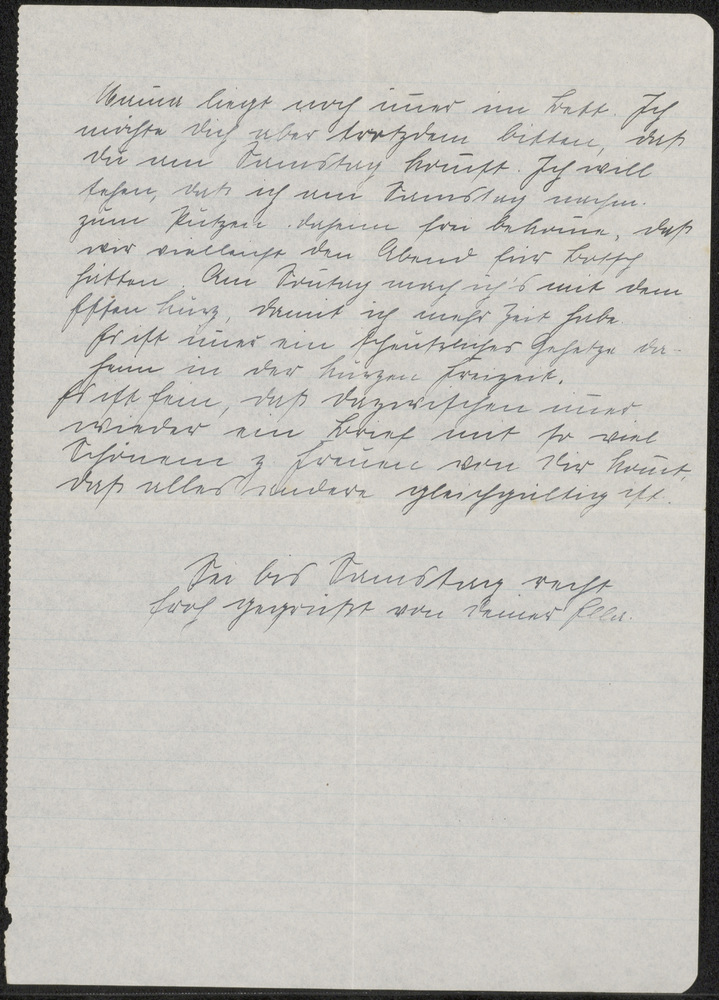 Mama liegt noch immer im Bett. Ich
möchte Dich aber trotzdem bitten, daß
Du am Samstag kommst. Ich will
sehen, daß ich am Samstag nachm.
zum Putzen daheim frei bekomme, daß
wir vielleicht den Abend für
hätten. Am Sontag mach ich's mit dem
Essen kurz, damit ich mehr Zeit habe.
Es ist immer ein scheußliches Gehetze da-
heim in der kurzen Freizeit.
Es ist fein, daß dazwischen immer
wieder ein Brief mit so viel
Schönem z. freuen von Dir kommt,
daß alles andere gleichgültig ist.
Sei bis Samstag recht
froh gegrüßt von Deiner Ella.